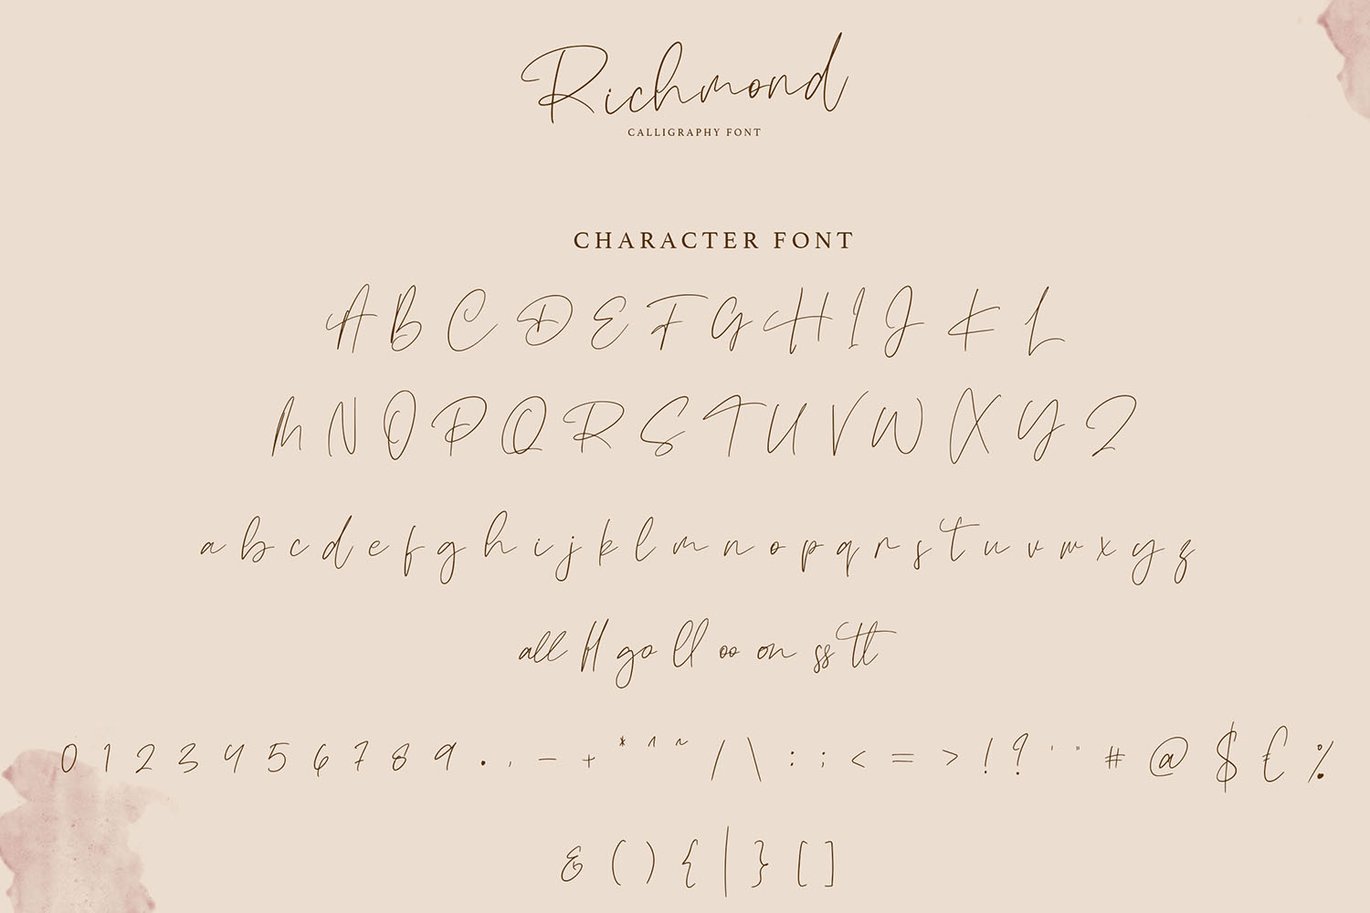 Richmond
CALLIGRAPHY FONT
CHARACTER FONT
A B C D E F G H I J K L
M N O P Q R S T U V W X Y Z
a b c d e f g h i j k l m n o p q r s t u v w x y z
all ll go ll oo on ss tt
0 1 2 3 4 5 6 7 8 9 . , - + * ^ ~ / \ : ; < = > ! ? ' " # @ $ € %
& ( ) { | } [ ]